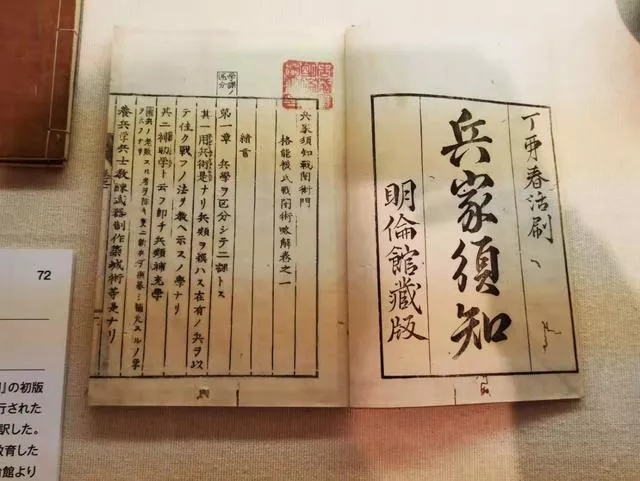 丁夘春活刷
兵家須知
明倫館藏版
兵家須知戰鬪術門
格能穆氏戰鬪術略解卷之一
緒言
學課ノ區分
第一章 兵學ヲ區分シテ二部トス
其一用兵術是ナリ兵類ヲ撰ハス在有ノ兵ヲ以
テ佳ク戰フノ法ヲ教ヘ示スノ學ナリ
其二補助學ト云フ即チ兵類補充學
養兵學兵士教練武器制作築城術等是ナリ
72
』の初版
行された
訳した。
教育した
館より